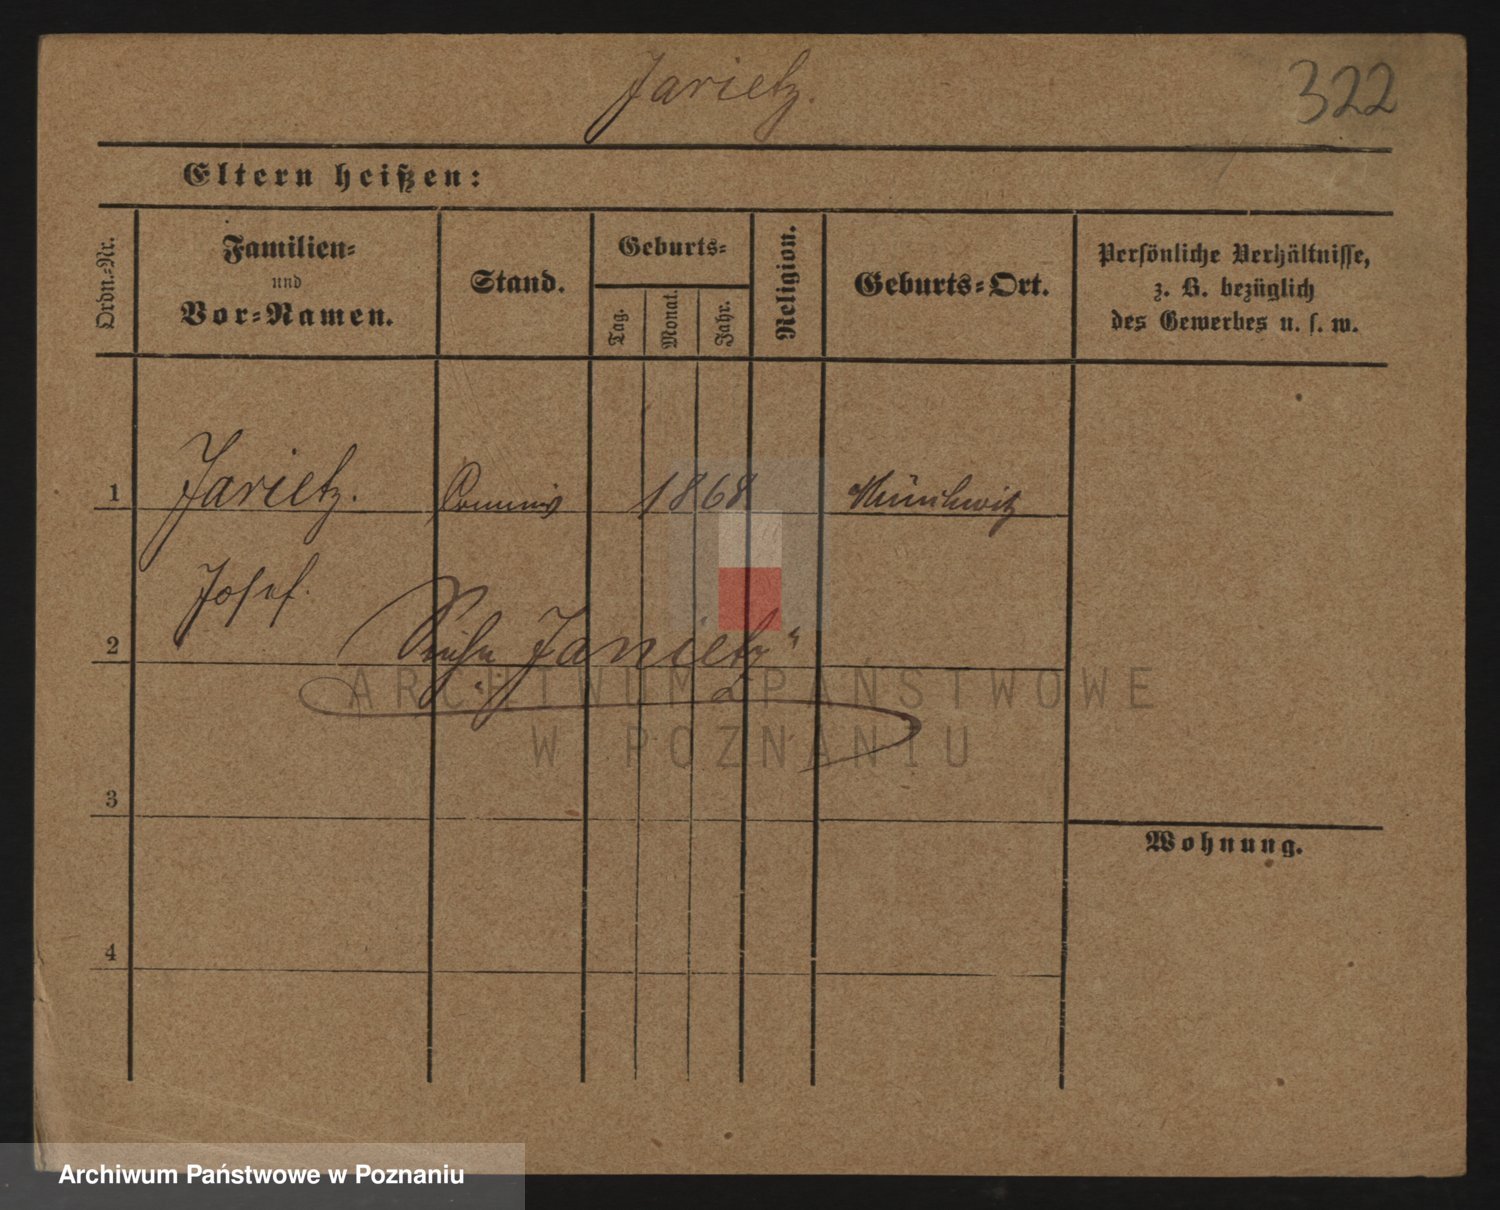 Jarietz.
322
Eltern heißen:
Ordn.-Nr.
Familien-
und
Vor-Namen.
Stand.
Geburts-
Tag.
Monat.
Jahr.
Religion.
Geburts-Ort.
Persönliche Verhältnisse,
z. B. bezüglich
des Gewerbes u. s. w.
1 Jarietz. Commis 1868
Josef.
2 Siehe „Janietz“
3
4
Wohnung.
ARCHIWUM PAŃSTWOWE
W POZNANIU
Archiwum Państwowe w Poznaniu